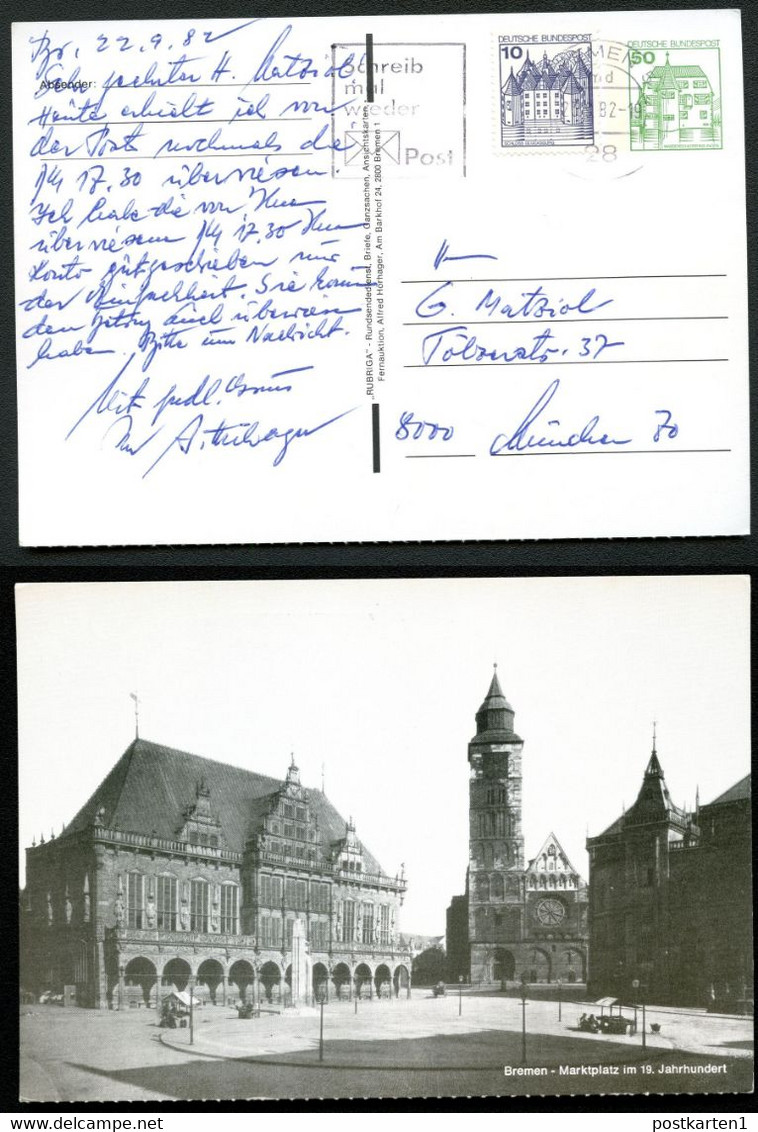 Br, 22.9.82
Absender:
Sehr geehrter H. Matziol
Heute erhielt ich von
der Post nochmals die
DM 17.30 überwiesen.
Ich habe die von Ihnen
überwiesenen DM 17,30 Ihrem
Konto gutgeschrieben nur
der Einfachheit. Sie können
den Betrag auch überwiesen
haben. Bitte um Nachricht.
Mit frdl. Gruss
Ihr A. Hörhager
Schreib
mal
wieder
Post
DEUTSCHE BUNDESPOST
10
SCHLOSS GLÜCKSBURG
DEUTSCHE BUNDESPOST
50
28
„RUBRIGA" - Rundsendedienst, Briefe, Ganzsachen, Ansichtskarten,
Fernauktion, Alfred Hörhager, Am Barkhof 24, 2800 Bremen 1
Hrn
G. Matziol
Tölzerstr. 37
8000 München 70
Bremen - Marktplatz im 19. Jahrhundert
postkarten1